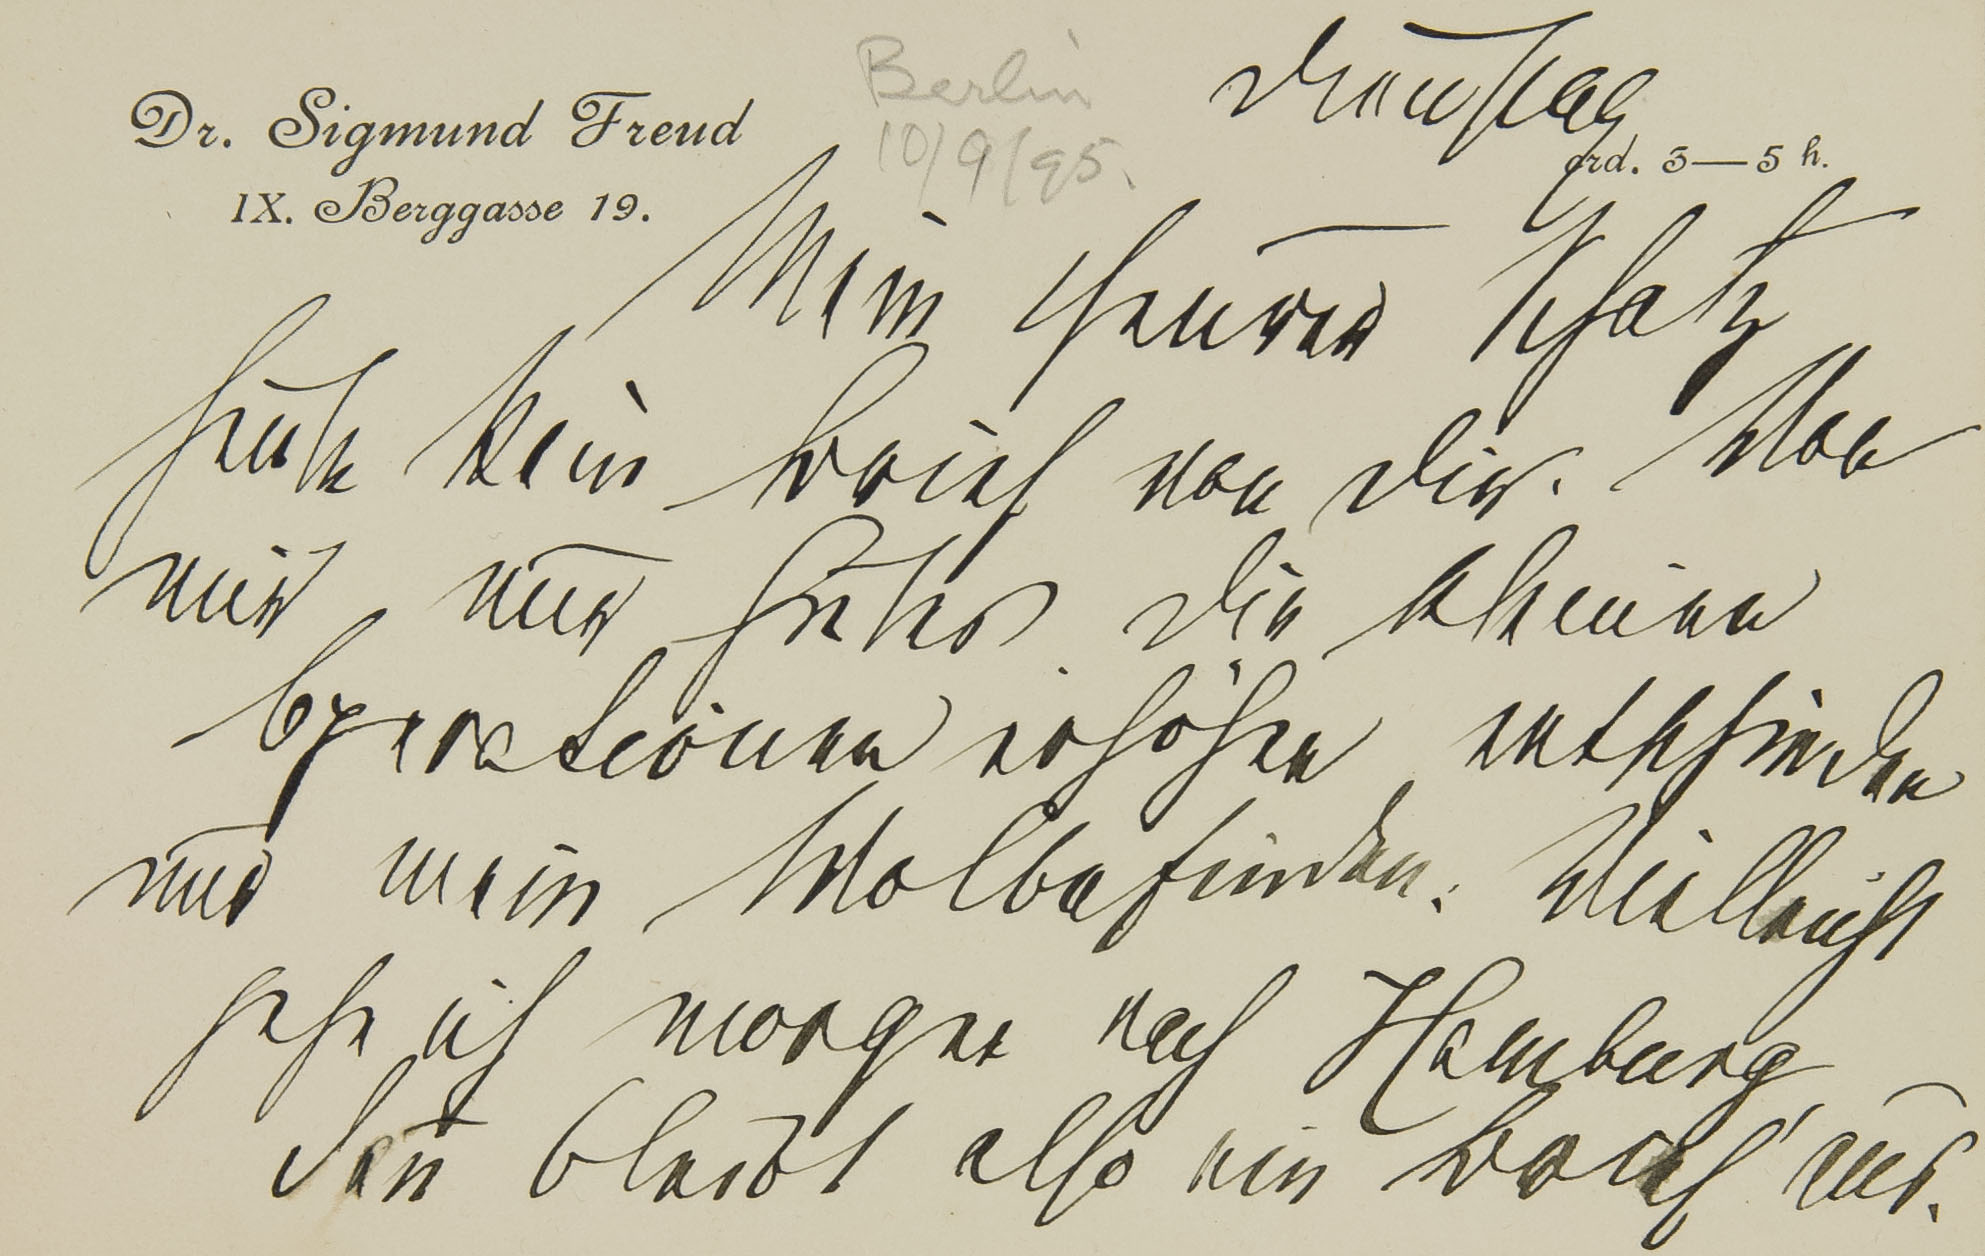 Dienstag
Berlin
10/9/95.
Dr. Sigmund Freud
ord. 3—5 h.
IX. Berggasse 19.
Mein theurer Schatz
Heute kein Brief von Dir. Von
mir nur Gutes die kleinen
Operationen erhöhen entschieden
nur mein Wolbefinden. Vielleicht
gehe ich morgen nach Hamburg,
dann bleibt also ein Brief aus.